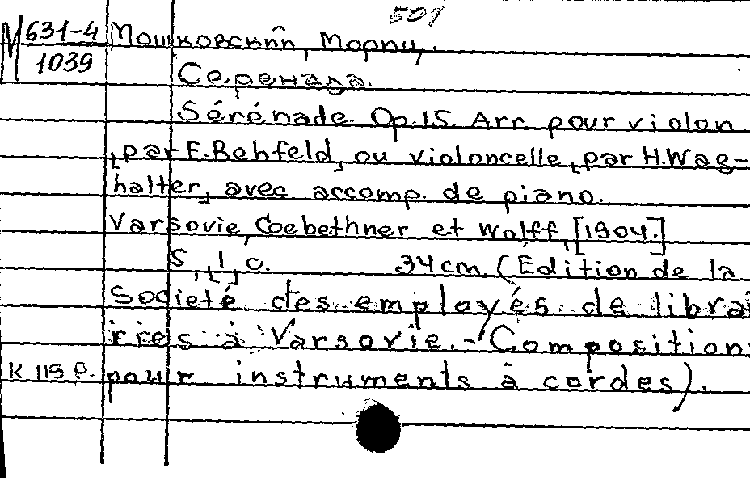 501
М 631-4 Мошковский, Мориц.
1039
Серенада.
Sérénade. Op.15. Arr. pour violon
, par E. Rehfeld, ou violoncelle, par H. Wag-
halter, avec accomp. de piano.
Varsovie, Goebethner et Wolff, [1904.]
5, 1, с. 34 cm. (Edition de la
Societé des employés de librai
ries à Varsovie. - Composition
К 115 р. pour instruments à cordes).